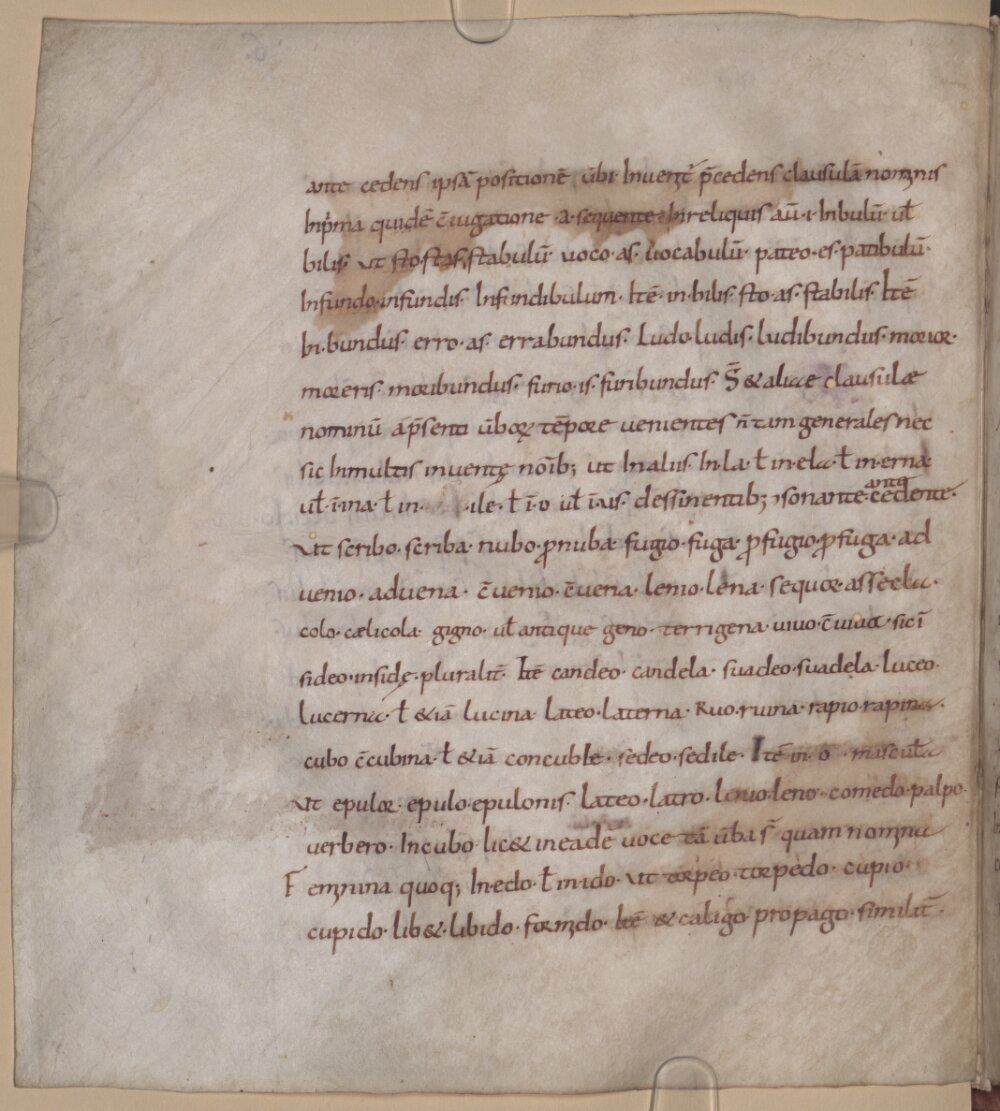 ante cedens ipsā positionē ūbi Inuenit᷑ p̄cedens clausulā nominis
Inp̍ma quidē c̄iugatione ·a· sequente ł In reliquis aū· i· In bulū uł
bilis· ut sto stas· stabulū uoco· as· uocabulū pateo· es· patibulū·
Infundo· infundis· Infundibulum· Itē· in· bilis· sto· as· stabilis· Itē
In· bundus· erro· as· errabundus· Ludo· ludis· ludibundus· morior·
moreris· moribundus· furio· is· furibundus· S̄ & aliae clausulae
nominū a p̄senti ūborꝝ tēpore uenientes n̄ tam generales nec
sic Inmultis inuentę noīb; ut In alus· In· la· ł in· ela· ł in· erna·
uł· ī· ina· ł in· ·ile· ł ī· o uł ī· us· dessinentib; ɔsonante antecedente·
Ut scribo· scriba· nubo· ꝓnuba· fugio· fuga· ꝓfugio· ꝓfuga· ad
uenio· aduena· c̄uenio· c̄uena· lenio· lena· sequor· assecla·
colo· caelicola· gigno· uł antique geno· terrigena· uiuo· c̄uiua· sic ī
sideo· insidę· pluralit̄· Itē candeo· candela· suadeo· suadela· luceo·
lucerna· ł &iā lucina· lateo· laterna· Ruo· ruina· rapio· rapina·
cubo c̄cubina· ł &iā concubile· sedeo· sedile· Itē in· o· mascuła
Ut epulor· epulo· epulonis· Lateo· latro· lenio· leno· comedo· palpo·
uerbero· Incubo lic& in eadē uoce tā ūba s̄ quam nomina
Feminina quoq; In· edo· ł in· ido· ut torpeo· torpedo· cupio·
cupido· lib&· libido· formido· Itē & caligo· propago· similit̄·